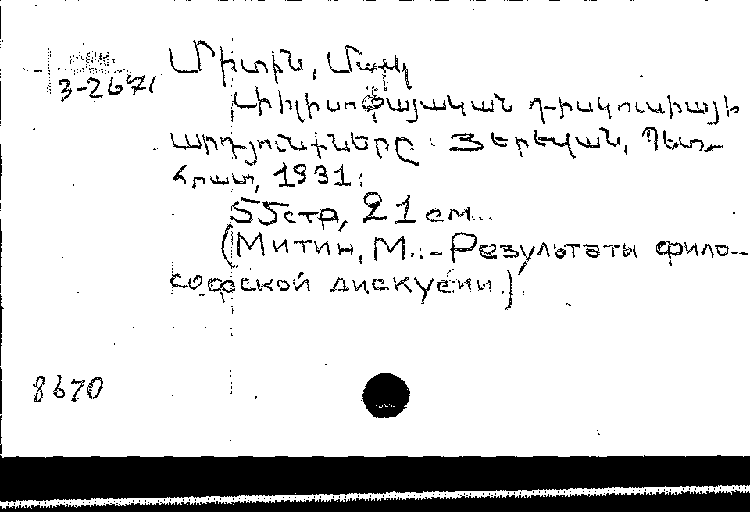 Միտին, Մարկ
3-2671
Ֆիլիսոփայական դիսկուսիայի
արդյունքները: Յերեվան, Պետ-
հրատ, 1931:
55 стр, 21 см.
(Митин, М. - Результаты фило-
софской дискусии.)
8670